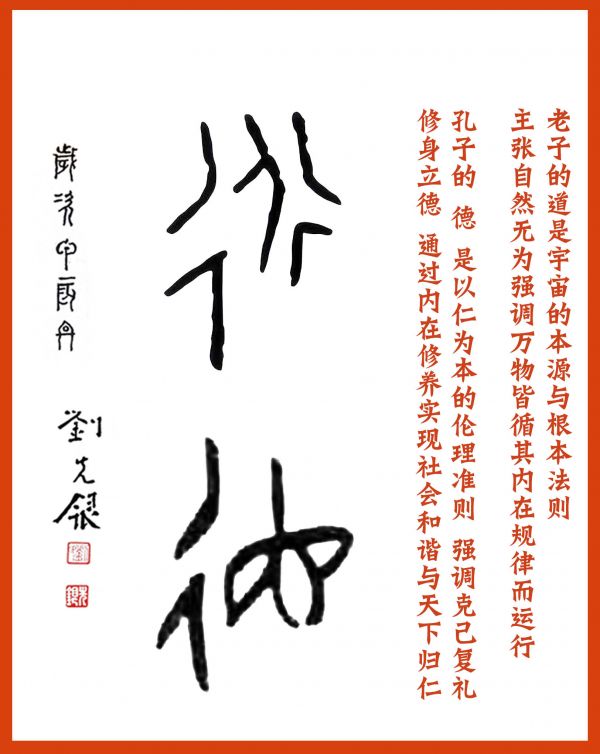 老子的道是宇宙的本源与根本法则
主张自然无为强调万物皆循其内在规律而运行
孔子的 德 是以仁为本的伦理准则 强调克己复礼
修身立德 通过内在修养实现社会和谐与天下归仁
歲次甲辰 劉先銀